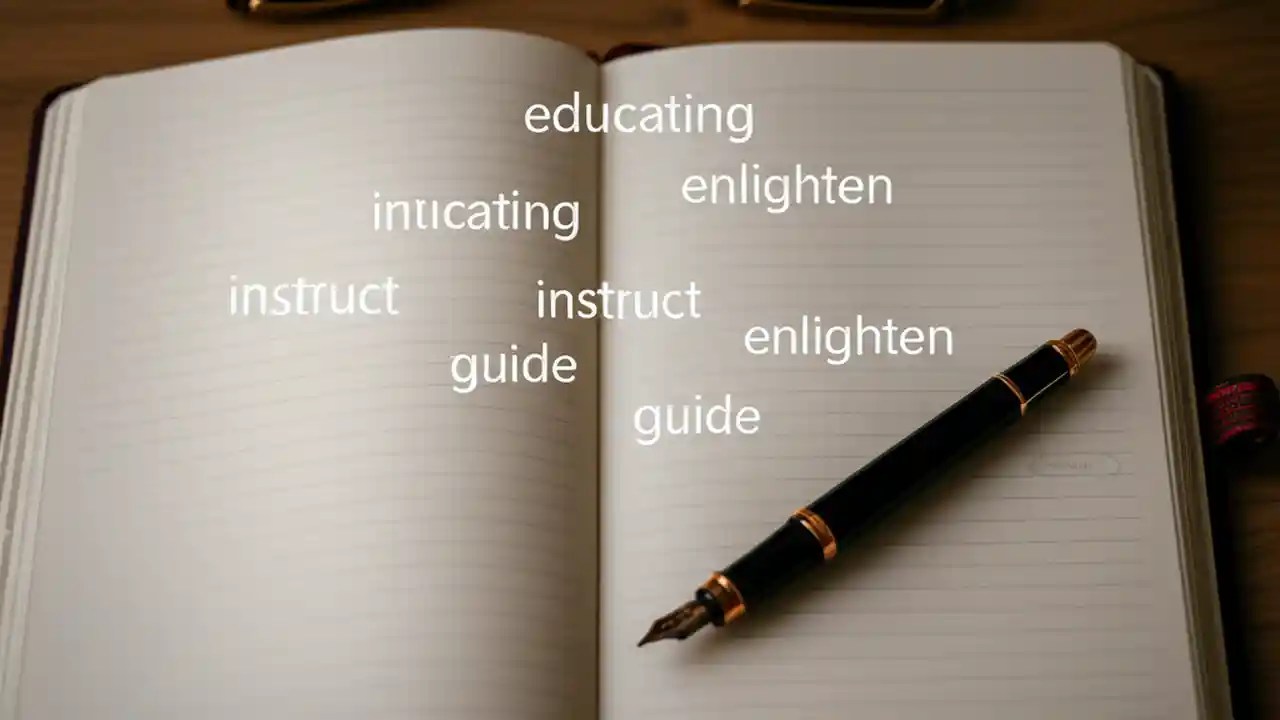 educating
enlighten
intıcating
instruct
instruct
enlighten
guide
guide